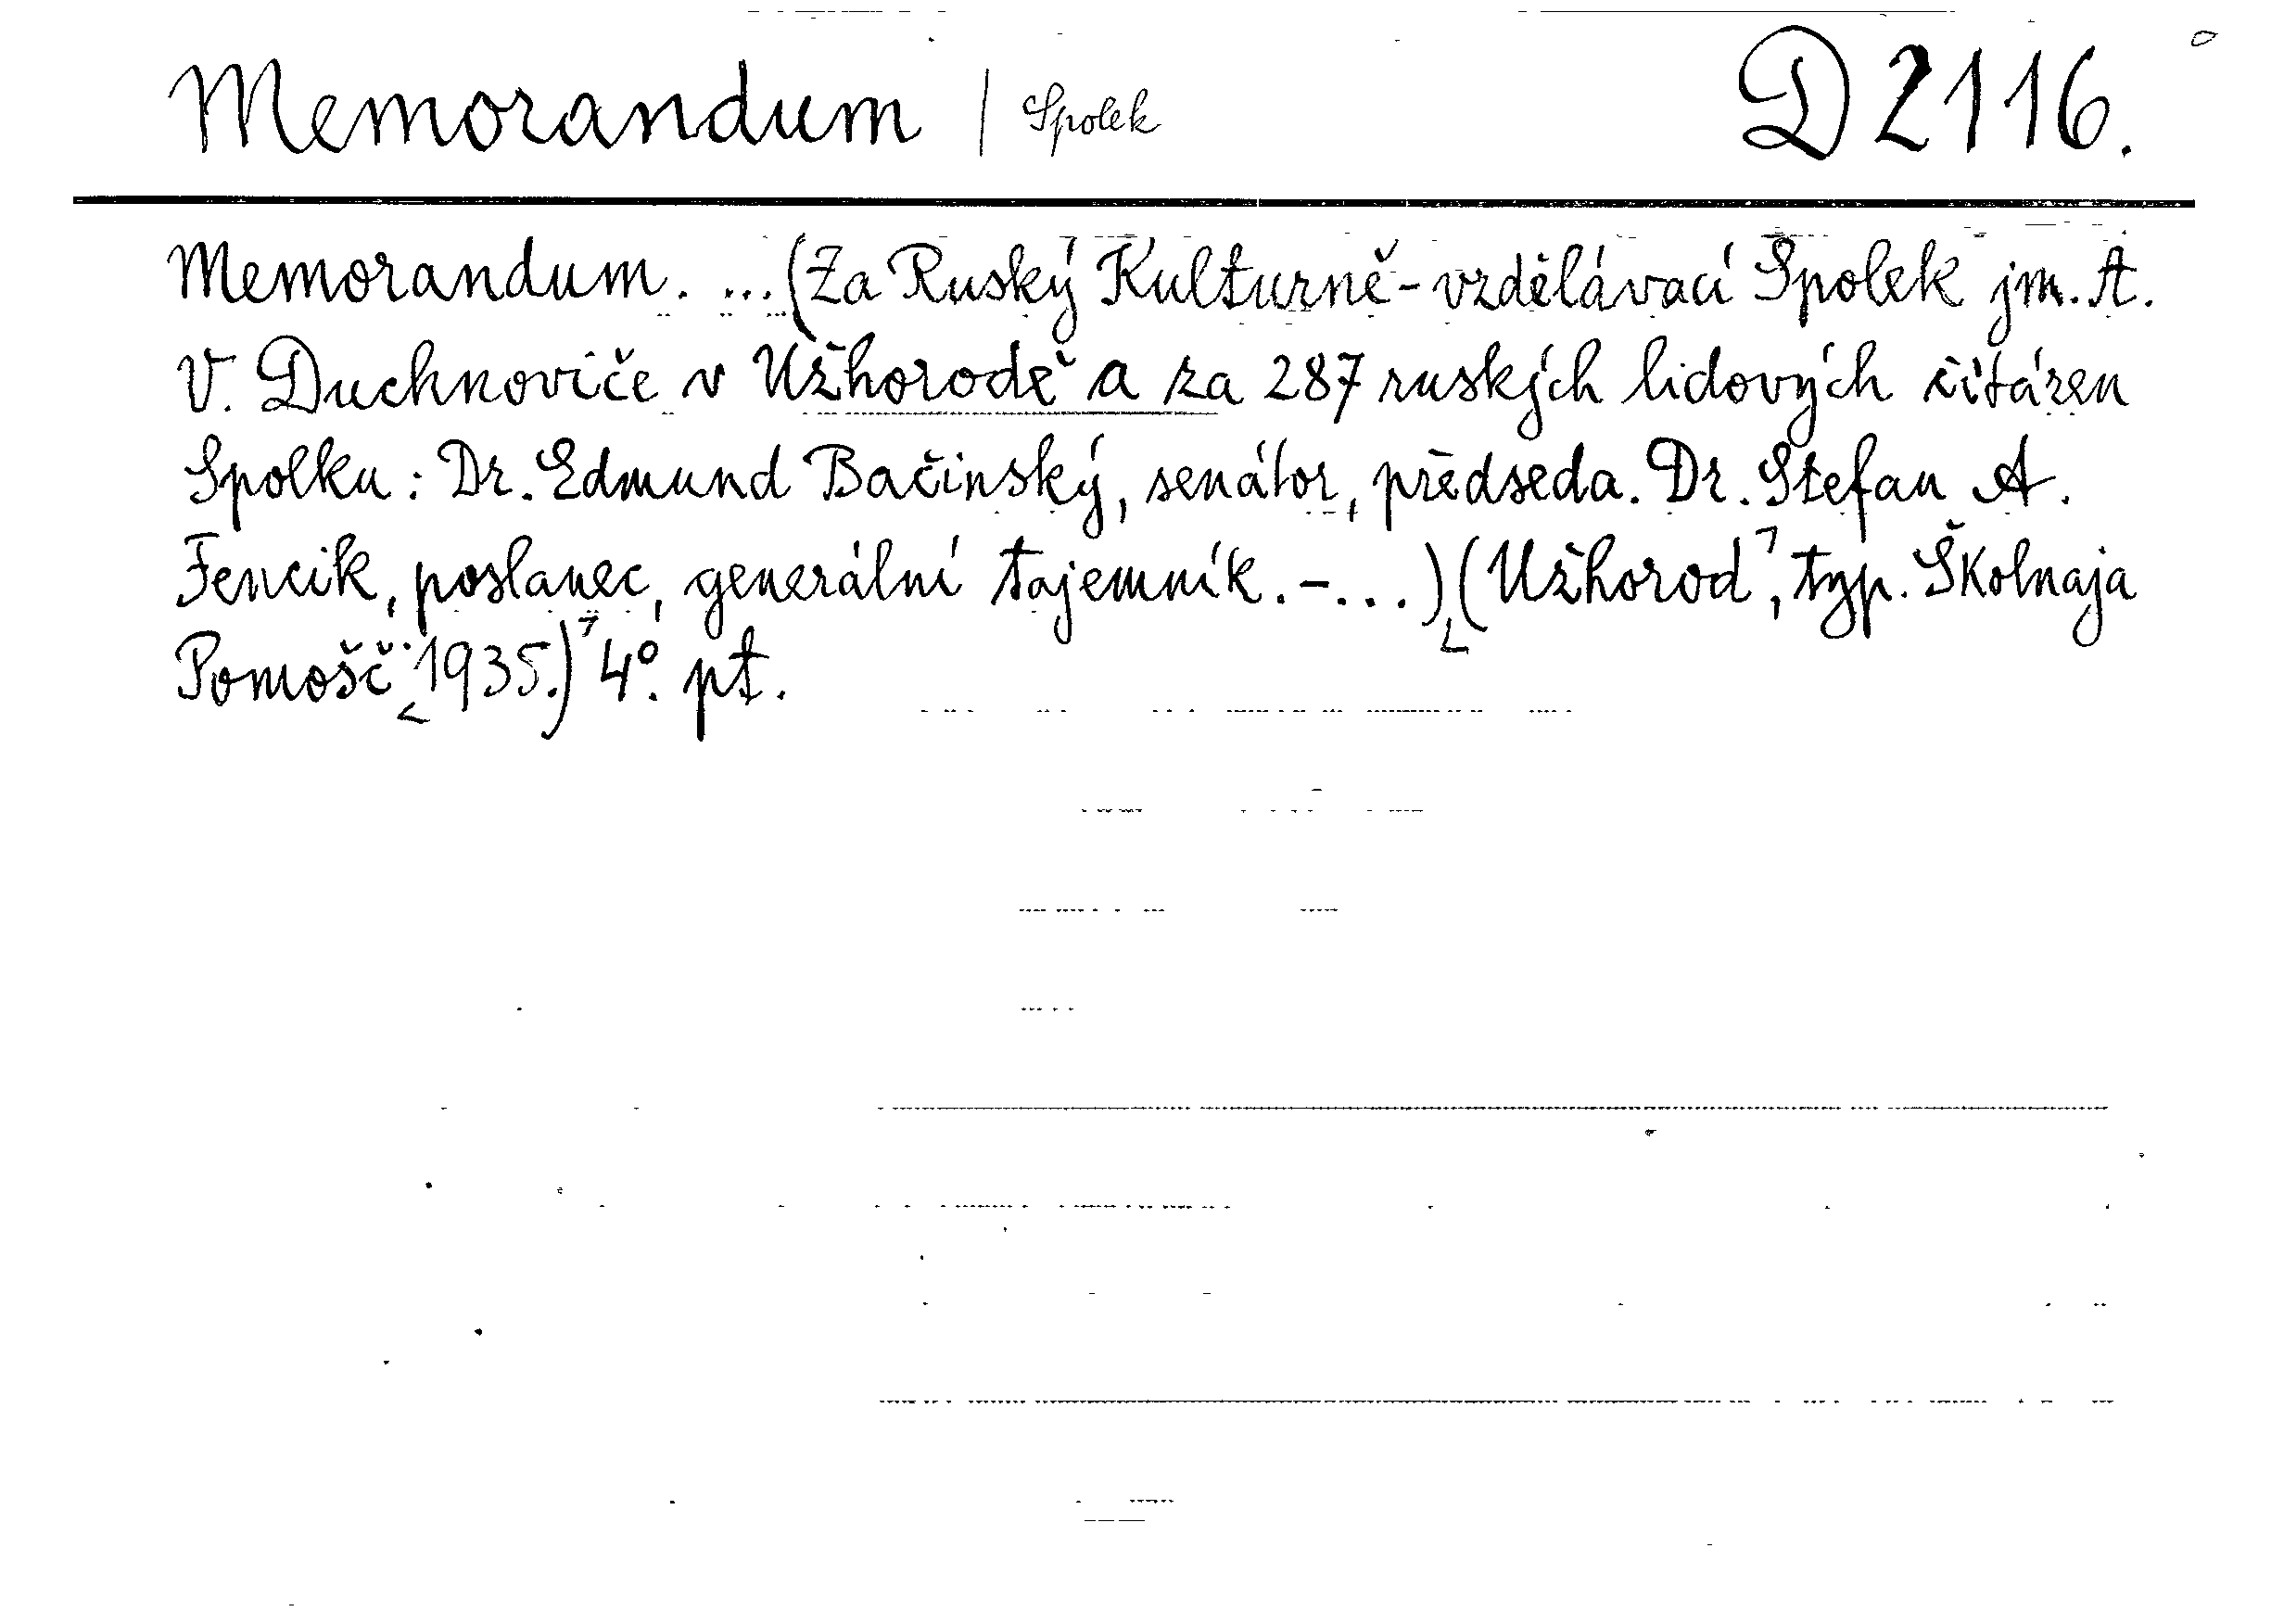 Memorandum | Spolek D 2116.
Memorandum. ... (Za Ruský Kulturně-vzdělávací Spolek jm. A.
V. Duchnoviče v Užhorodě a za 287 ruských lidových čitáren
Spolku: Dr. Edmund Bačinský, senátor, předseda. Dr. Štefan A.
Fencik, poslanec, generální tajemník. - ...) (Užhorod, typ. Školnaja
Pomošč 1935.) 4°. pt.